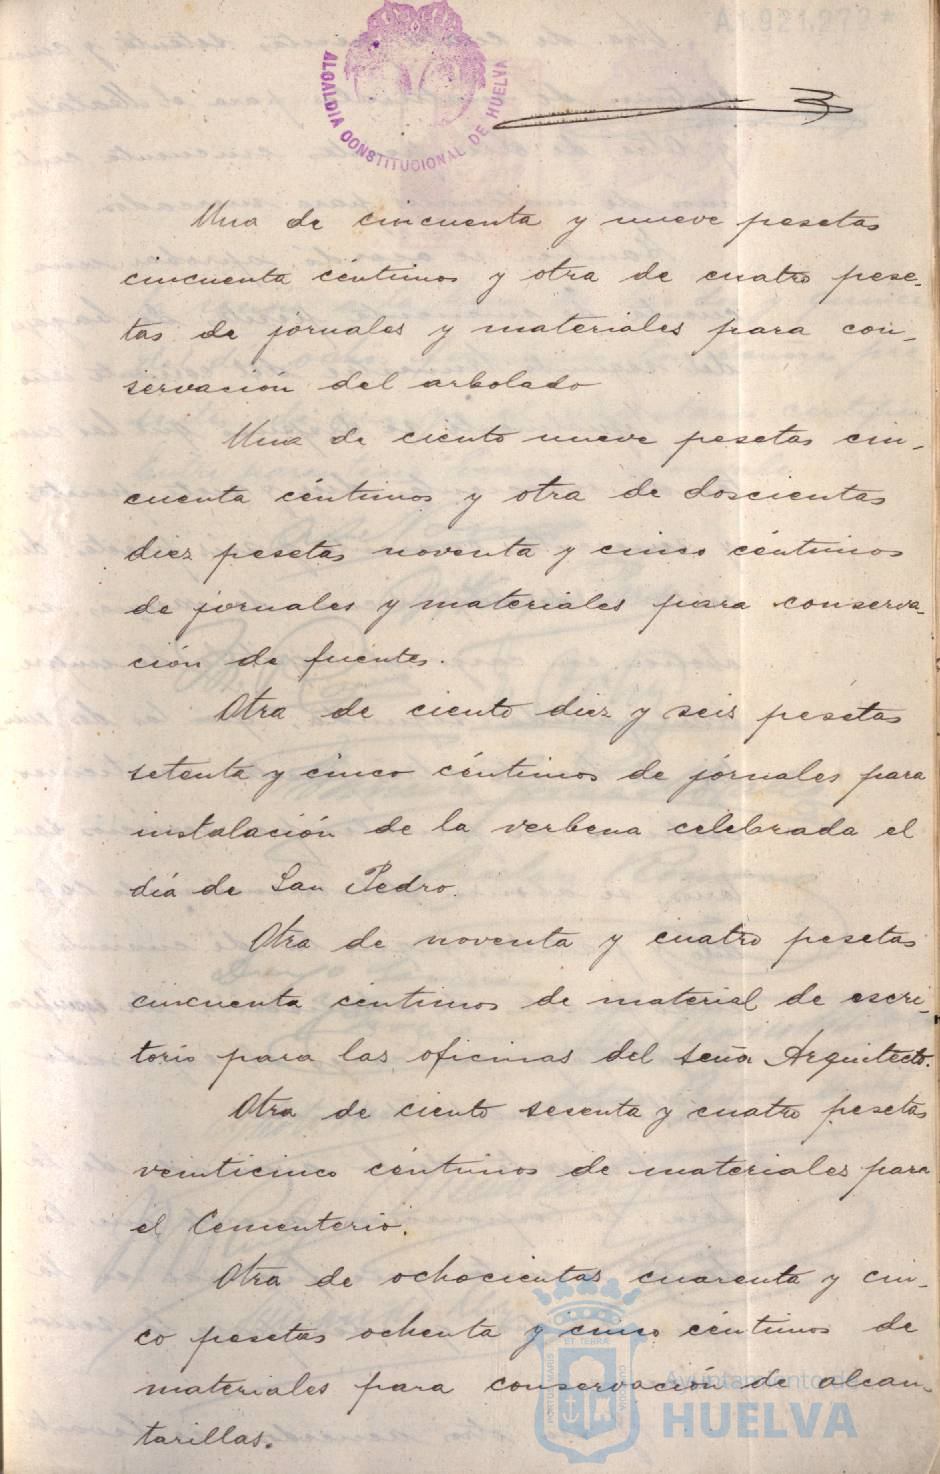 A1.921.272*
ALCALDIA CONSTITUCIONAL DE HUELVA
Una de cincuenta y nueve pesetas
cincuenta céntimos y otra de cuatro pese-
tas de jornales y materiales para con-
servación del arbolado
Una de ciento nueve pesetas cin-
cuenta céntimos y otra de doscientas
diez pesetas noventa y cinco céntimos
de jornales y materiales para conserva-
ción de fuentes.
Otra de ciento diez y seis pesetas
setenta y cinco céntimos de jornales para
instalación de la verbena celebrada el
día de San Pedro.
Otra de noventa y cuatro pesetas
cincuenta céntimos de material de escri-
torio para las oficinas del señor Arquitecto.
Otra de ciento sesenta y cuatro pesetas
veinticinco céntimos de materiales para
el Cementerio.
Otra de ochocientas cuarenta y cin-
co pesetas ochenta y cinco céntimos de
materiales para conservación de alcan-
tarillas.
PORTUS MARIS ET TERRAE CUSTODIA
Ayuntamiento de
HUELVA